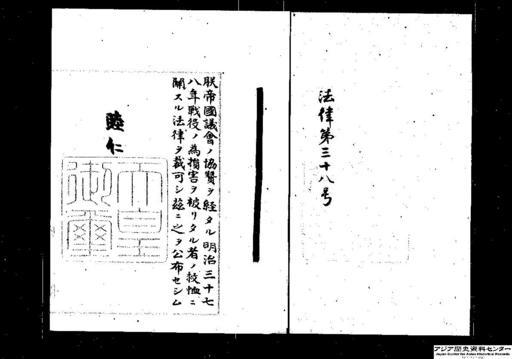 法律第三十八号
朕帝國議會ノ協賛ヲ経タル明治三十七
八年戦役ノ為損害ヲ被リタル者ノ救恤ニ
關スル法律ヲ裁可シ茲ニ之ヲ公布セシム
睦仁
天皇
御璽
アジア歴史資料センター
Japan Center for Asian Historical Records